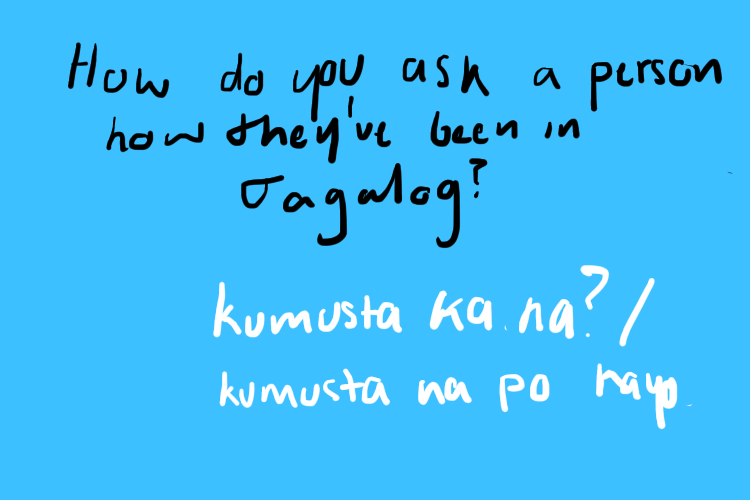 How do you ask a person
how they've been in
Tagalog?
kumusta ka na? /
kumusta na po kayo.